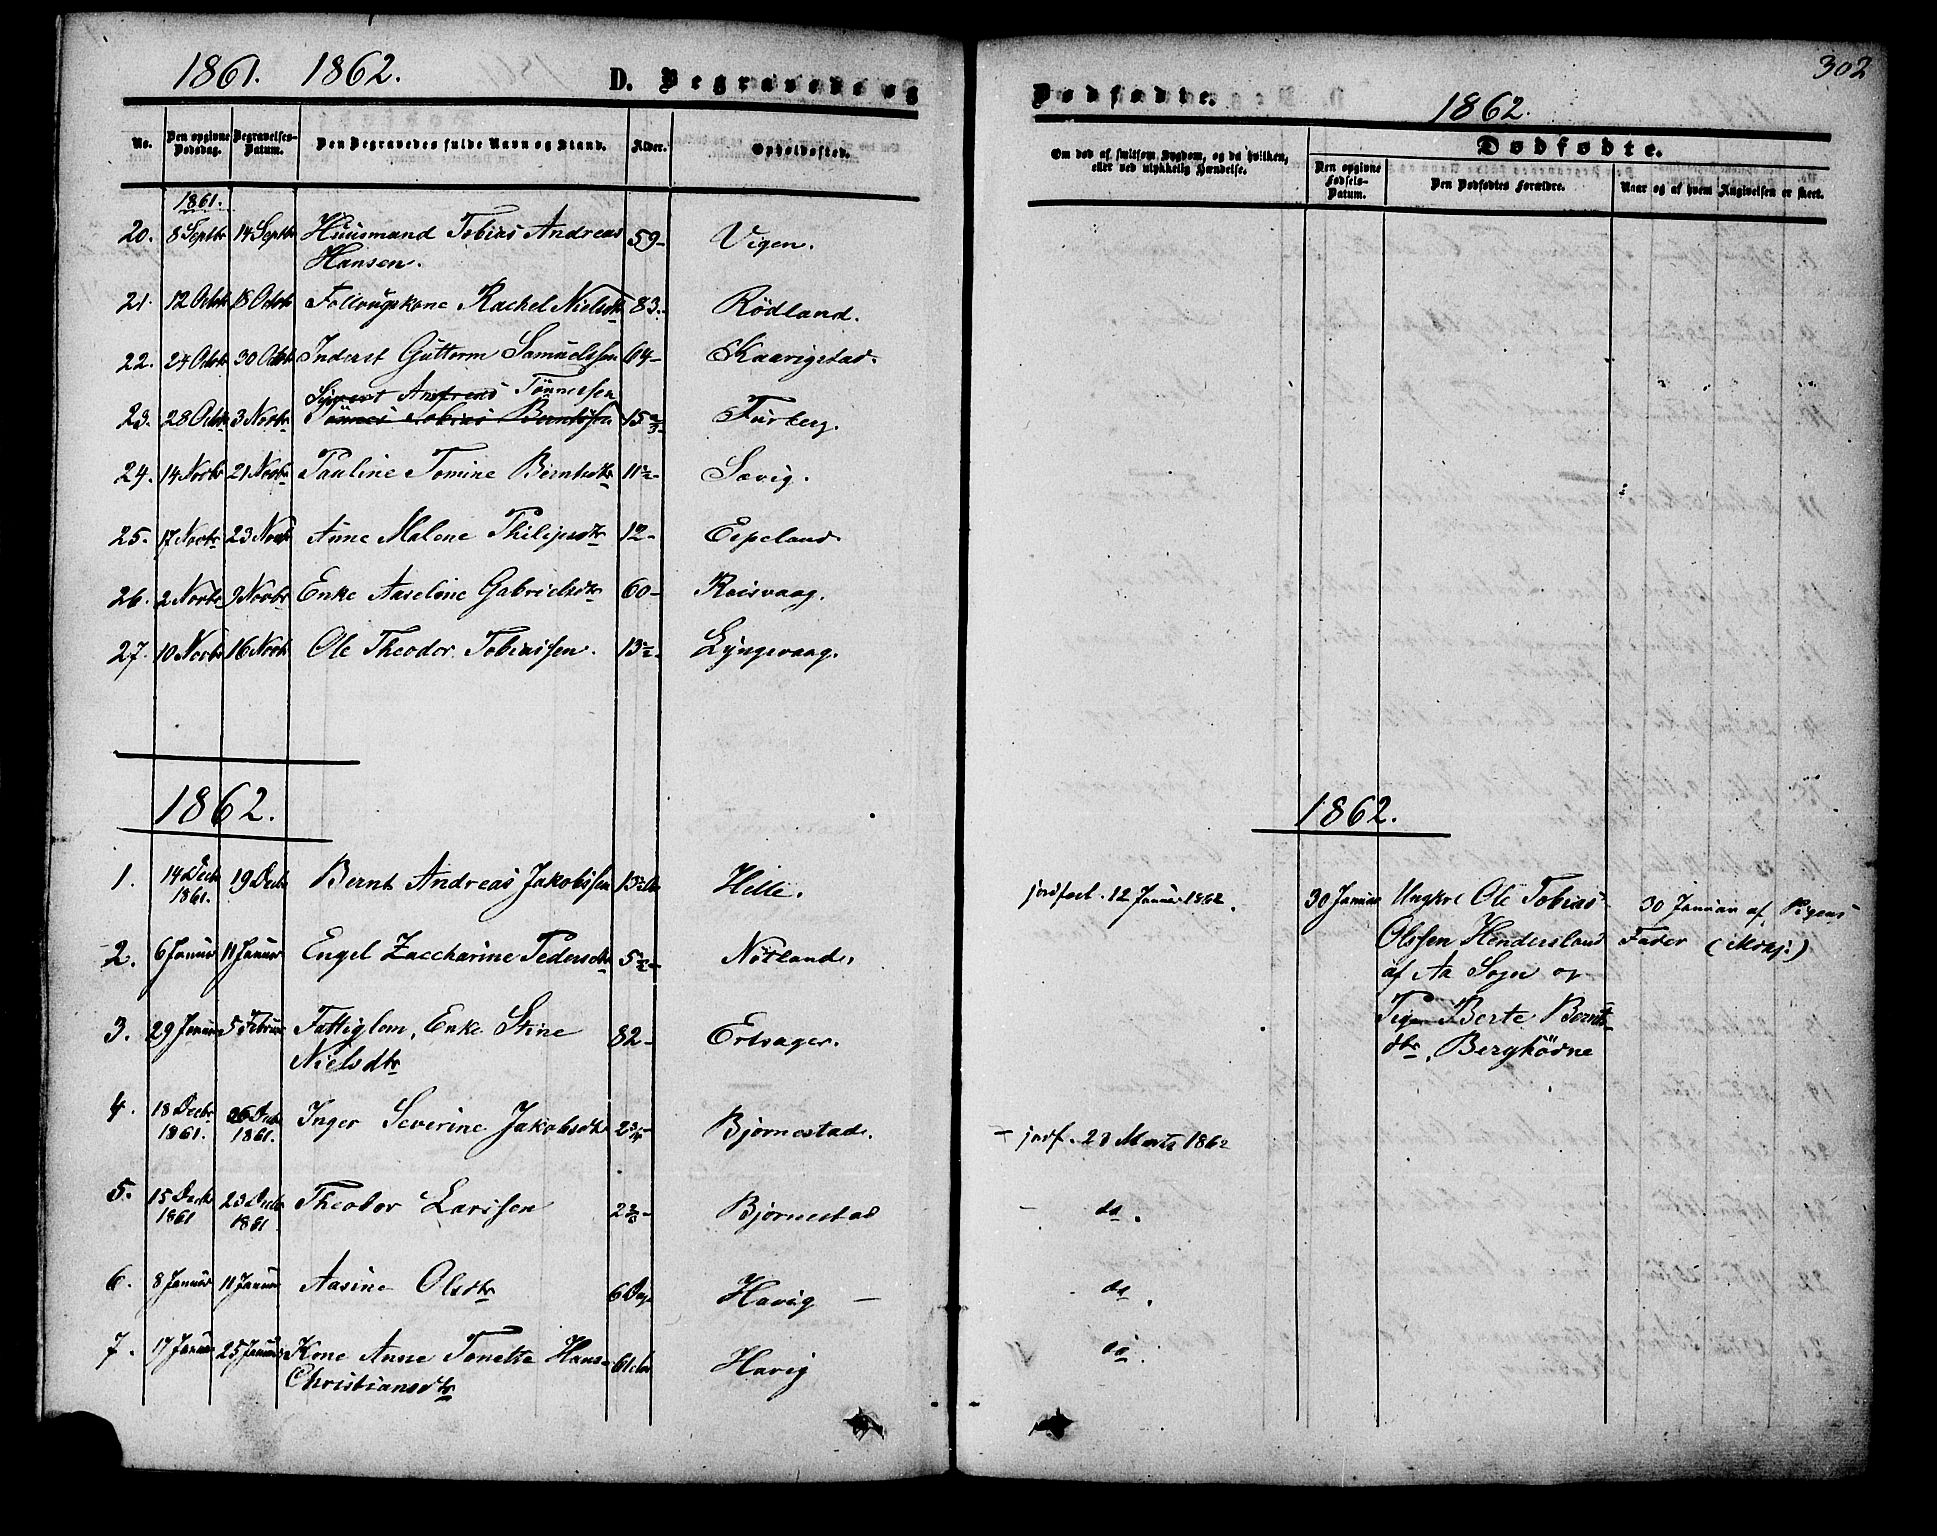 1861. 1862.
D. Begravede og
No.
Den opgivne Dødsdag.
Begravelses-Datum.
Den Begravedes fulde Navn og Stand.
Alder.
Opholdssted.
1861.
20. 8 Septbr 14 Septbr Huusmand Tobias Andreas 59- Vigen.
Hansen.
21. 12 Octbr 18 Octbr Follougskone Rachel Nielsdtr 83.- Rödland.
22. 24 Octbr 30 Octbr Inderst Guttorm Samuelssen 64- Kaarigstad.
Sivert Andreas Tönnessen
23. 28 Octbr 3 Novbr Tönnes Tobias Berntssen 15 Furberg.
24. 14 Novbr 21 Novbr Pauline Tomine Berntsdtr 11½- Sævig.
25. 17 Novbr 23 Novbr Anne Malene Philipsdtr 12- Espeland
26. 2 Novbr 9 Novbr Enke Aaselene Gabrielsdtr 60- Roisvaag.
27. 10 Novbr 16 Novbr Ole Theodor Tobiassen. 13½- Lyngsvaag.
1862.
1. 14 Decbr 19 Decbr Bernt Andreas Jakobssen Helle.
1861.
2. 6 Januar 11 Januar Engel Zaccharine Pedersdtr 5½- Nötland.
3. 29 Januar 5 Februar Fattiglem, Enke Stine 82- Ertsager.
Nielsdtr
4. 18 Decbr 26 Decbr Inger Severine Jakobsdtr 2¾- Bjornestad.
1861. 1861.
5. 15 Decbr 23 Decbr Theodor Larssen 2⅔- Bjornestad
1861 1861
6. 8 Januar 11 Januar Aasine Olsdtr 6 Dag Havig -
7. 17 Januar 25 Januar Kone Anne Tonette Hans- 61 Havig
Christiansdtr
302
Dødfødte.
1862.
Om død af smitsom Sygdom, og da hvilken,
eller ved ulykkelig Hændelse.
Dødfødte.
Den opgivne Fødsels-Datum.
Den Dødfødtes Forældre.
Naar og af hvem Angivelsen er skeet.
1862.
jordfæst. 12 Januar 1862.
30 Januar Ungkrl Ole Tobias 30 Januar af Pigens
Olssen Hendersland Fader (ikdøj.)
af Aa Sogn og
Pigen Berte Bernts-
dtr. Bergködne
- jordf. 23 Marts 1862
- do.
do.
do.